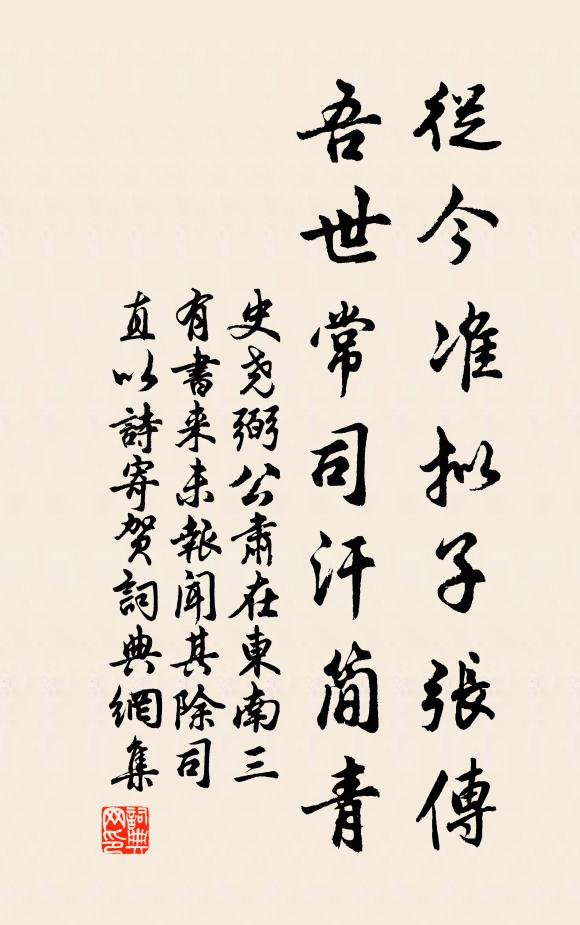 從今准拟子張傳
吾世常司汗简青
史尧弼公肅在東南三
有書来未報聞其除司
直以詩寄贺詞典網集
詞典網印